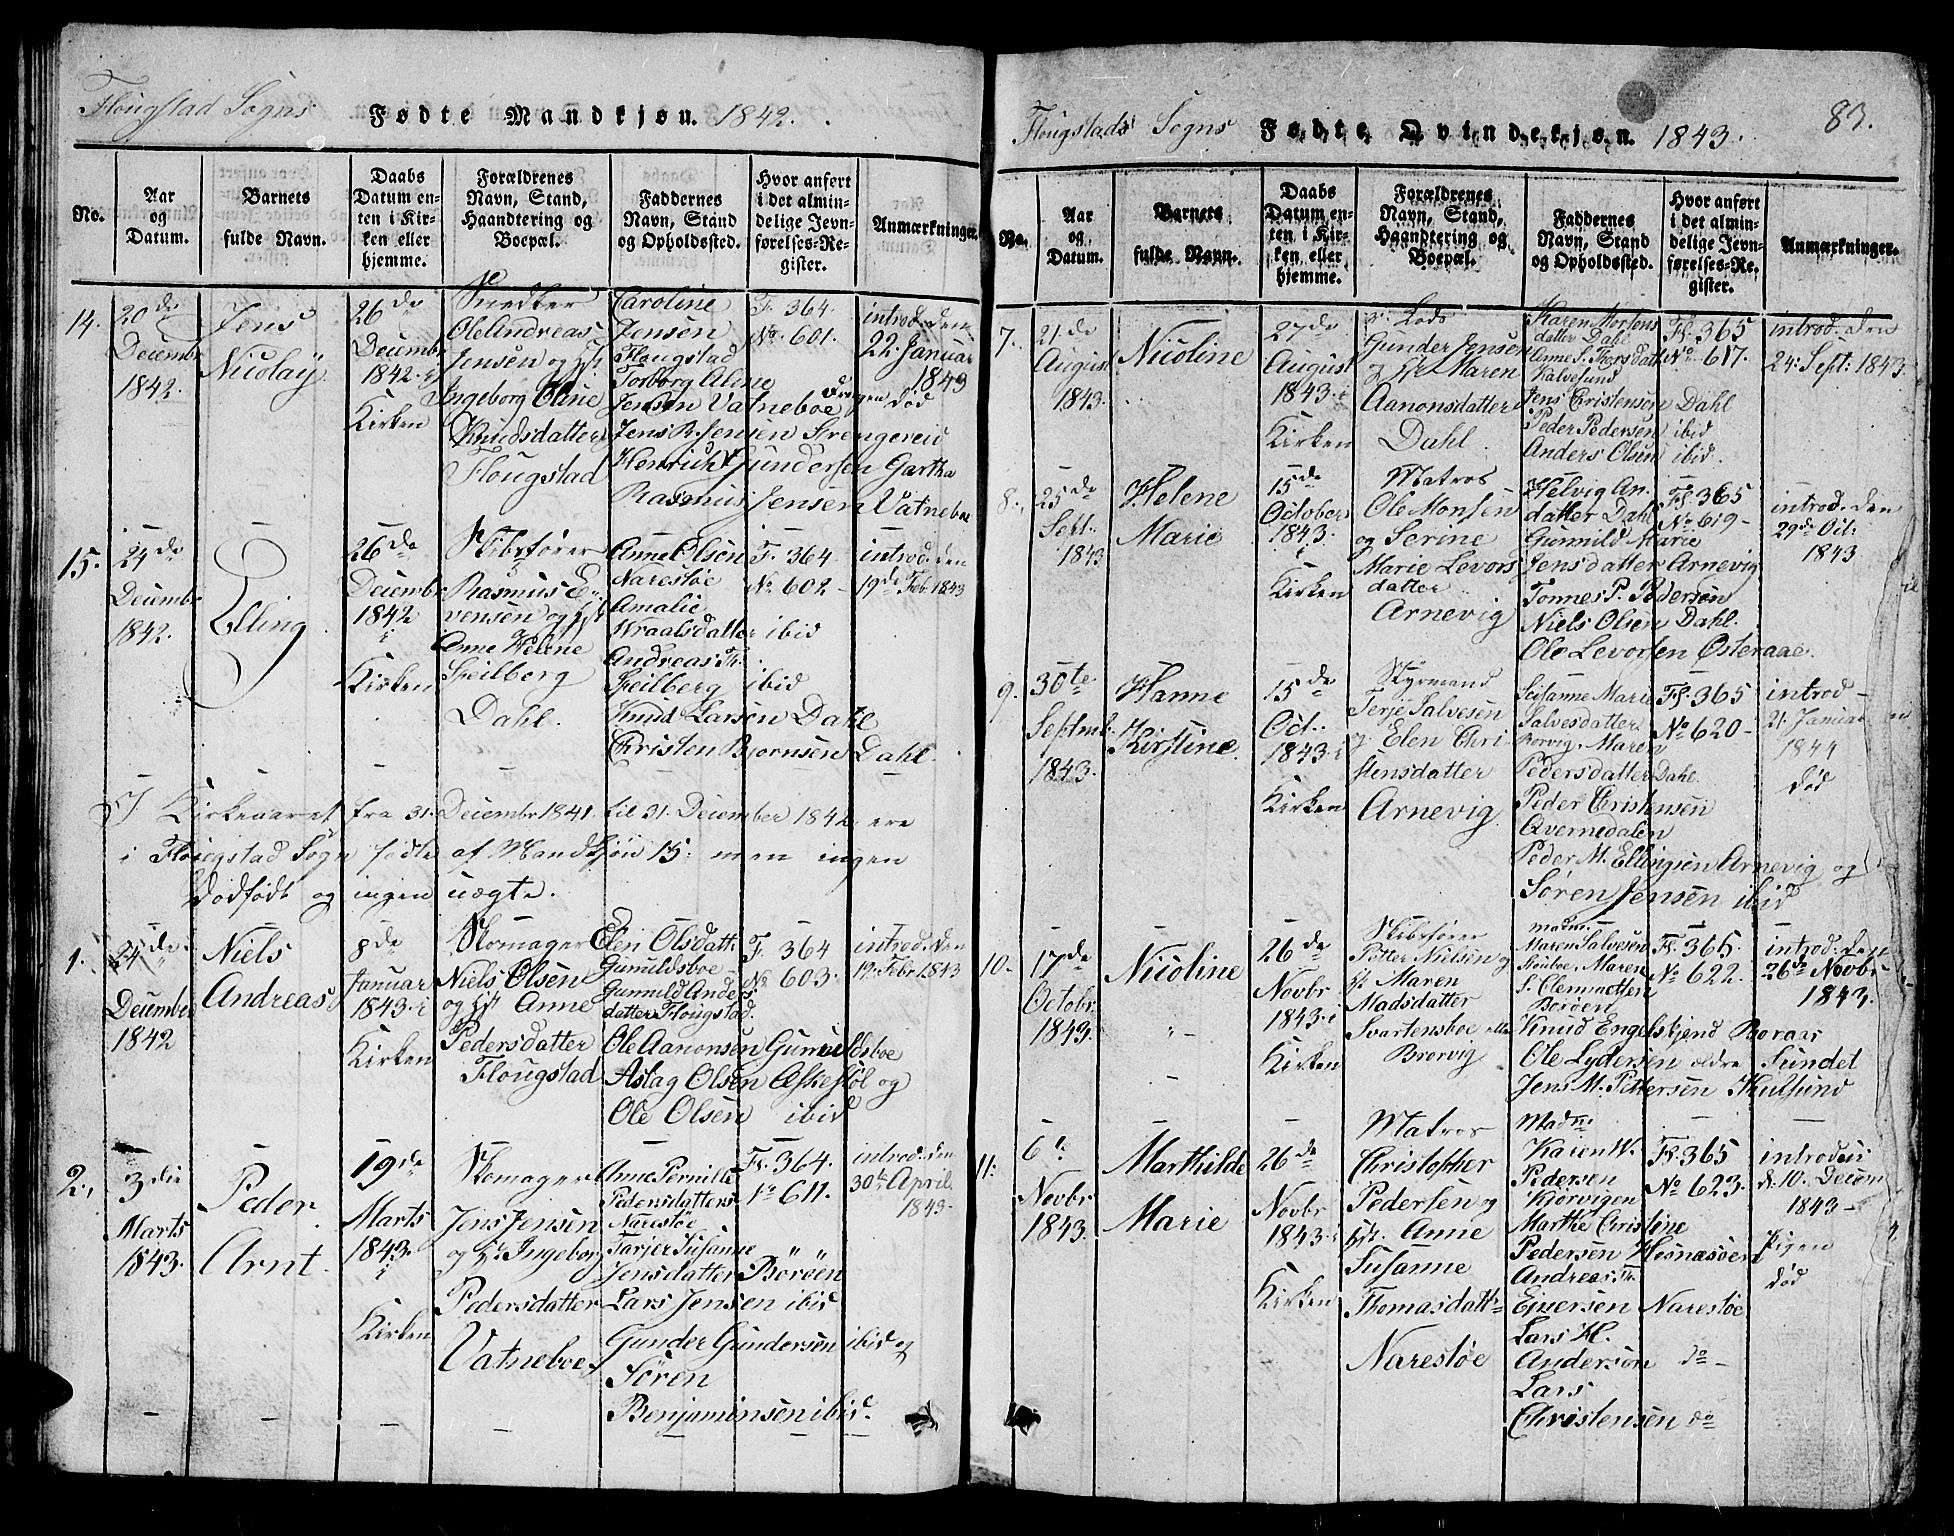 Flougstad Sogns Fødte Mandkjøn. 1842.
No.
Aar
og
Datum.
Barnets
fulde Navn.
Daabs
Datum en-
ten i Kir-
ken eller
hjemme.
Forældrenes
Navn, Stand,
Haandtering og
Boepæl.
Faddernes
Navn, Stand
og Opholdssted.
Hvor anført
i det almin-
delige Jevn-
førelses-Re-
gister.
Anmærkninger.
14.
20de
Decembr
1842.
Jens
Nicolaÿ
26de
Decembr
1842 i
Kirken
Snedker
Ole Andreas
Jensen og Hst
Ingeborg Oline
Knudsdatter
Flougstad
Caroline
Jensen
Flougstad
Torborg Aline
Jensen Vatneboe
Jens R. Jensen Strengereid
Henrich Gundersen Gartha
Rasmus Jensen Vatneboe
F. 364
No. 601.
introd. den
22. Januar
1843
Drengen død
15.
24de
Decembr
1842.
Elling
26de
Decembr
1842
i
Kirken
Skibsfører
Rasmus E-
vensen og Hst
Anne Helene
Feilberg
Dahl.
Anne Olsen
Narestøe
Amalie
Wraalsdatter ibid
Andreas Th.
Feilberg ibid
Knud Larsen Dahl
Christen Bjørnsen Dahl.
F. 364
No. 602
introd. den
19de Feb. 1843
I Kirkeaaret fra 31. Decembr 1841. til 31. December 1842 ere
i Flougstad Sogn fødte af Mandkjøn 15: men ingen
Dødfødt og ingen uægte.
1.
24de
Decembr
1842
Niels
Andreas
8de
Januar
1843. i
Kirken
Skomager
Niels Olsen
og Hst Anne
Pedersdatter
Flougstad
Elen Olsdatt.
Gunuldsboe
Gunuld Anders
datter Flougstad.
Ole Aanonsen Gunuldsboe
Aslag Olsen Askesløl og
Ole Olsen ibid
F. 364
No. 603.
introd. den
19. Febr 1843
2.
3die
Marts
1843.
Peder
Arnt.
19de
Marts
1843.
i
Kirken
Skomager
Jens Jensen
og Hst Ingeborg
Pedersdatter
Vatneboe
Anne Pernille
Pedersdatter
Narestøe
Tarjer Susanne
Jensdatter Borøen
Lars Jensen ibid
Gunder Gundersen ibid og
Søren
Benjaminsen ibid.
Fl. 364.
No 611.
introd. den
30te April
1843.
Flougstads Sogns Fødte Qvindekjøn. 1843. 83.
No.
Aar
og
Datum.
Barnets
fulde Navn.
Daabs
Datum en-
ten i Kir-
ken eller
hjemme.
Forældrenes
Navn, Stand,
Haandtering og
Boepæl.
Faddernes
Navn, Stand
og Opholdssted.
Hvor anført
i det almin-
delige Jevn-
førelses-Re-
gister.
Anmærkninger.
7.
21de
August
1843.
Nicoline
27de
August
1843. i
Kirken
Lods
Gunder Jensen
og Hst Maren
Aanonsdatter
Dahl.
Karen Mortens
datter Dahl
Anne S. Thorsdatt
Kalvesund
Jens Christensen Dahl
Peder Pedersen ibid
Anders Olsen ibid.
Fl. 365
No. 617.
introd. den
24. Sept: 1843
8.
25de
Sept.
1843
Helene
Marie
15de
October
1843.
i
Kirken
Matros
Ole Monsen
og Serine
Marie Levors
datter
Arnevig
Helvig An.
datter Dahl
Gunnild Marie
Jensdatter Arnevig
Tønnes P. Pedersen
Niels Olsen Dahl.
Ole Levorsen Østeraae.
Fl. 365
No 619-
introd. den
29de Oct:
1843
9.
30te
Septmb.
1843.
Hanne
Kirstine.
15de
Oct.
1843 i
Kirken
Styrmand
Terje Salvesen
og Elen Chri-
stensdatter
Arnevig
Susanne Marie
Salvesdatter
Borvig. Maren
Pedersdatter Dahl.
Peder Christensen
Qvernedalen
Peder M. Ellingsen Arnevig og
Søren Jensen ibid
Fl. 365
No 620-
introd-
21. Januar
1844
død
10.
17de
Octobr
1843.
Nicoline
26de
Novbr
1843. i
Kirken
Skibsfører
Petter Nielsen og
Hst Maren
Madsdatter
Svartensboe
Brorvig
Madm.
Maren Salvesen
Stuboe. Maren
S. Clemmetsen
Borøen
Knud Engelskjend Boraas
Ole Lydersen ældre Sundet
Jens M. Pettersen Skutsund
Fl. 365.
No 622.
introd. den
26de Novbr.
1843.
11.
6te
Novbr
1843.
Marthilde
Marie
26de
Novbr
1843. i
Kirken
Matros
Christopher
Pedersen og
Hst. Anne
Susanne
Thomasdatt
Narestøe
Madm
Karen W.
Pedersen
Kjørvigen
Marthe Christine
Pedersen Hesnæsøen
Andreas Th.
Ejversen Narestøe
Lars H.
Anderson do -
Lars
Christensen do
Fl. 365
No 623.
introduc.
d: 10. Decem
1843-
Pigen
død